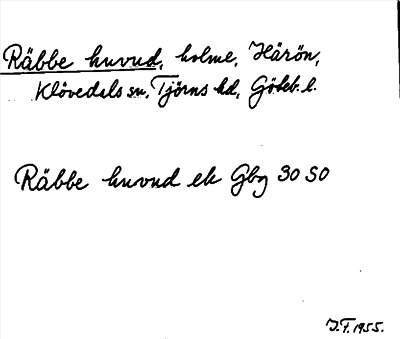 Räbbe huvud, holme, Hårön,
Klövedals sn, Tjörns hd, Göteb. l.
Räbbe huvud ek Gbg 30 SO
J.F. 1955.